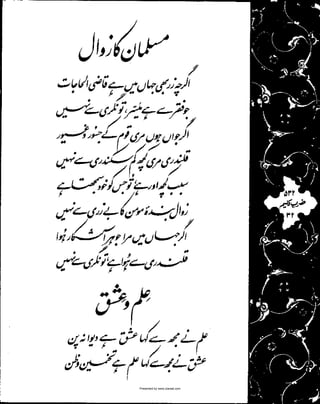 مسلمان کا زوال
اگرچہ زر بھی جہاں میں ہے قاضی الحاجات
جو فقر سے ہے میسر، تو نگری سے نہیں
اگر جواں ہوں مری قوم کے جسور و غیور
قلندری مری کچھ کم سکندری سے نہیں
سبب کچھ اور ہے، تو جس کو خود سمجھتا ہے
زوال بندۂ مومن کا بے زری سے نہیں
اگر جہاں میں مرا جوہر آشکار ہوا
قلندری سے ہوا ہے، تو نگری سے نہیں
علم و عشق
علم نے مجھ سے کہا عشق ہے دیوانہ پن
عشق نے مجھ سے کہا علم ہے تخمین و ظن
۵۳۲
ضرب کلیم
۳۲
Presented by www.ziaraat.com